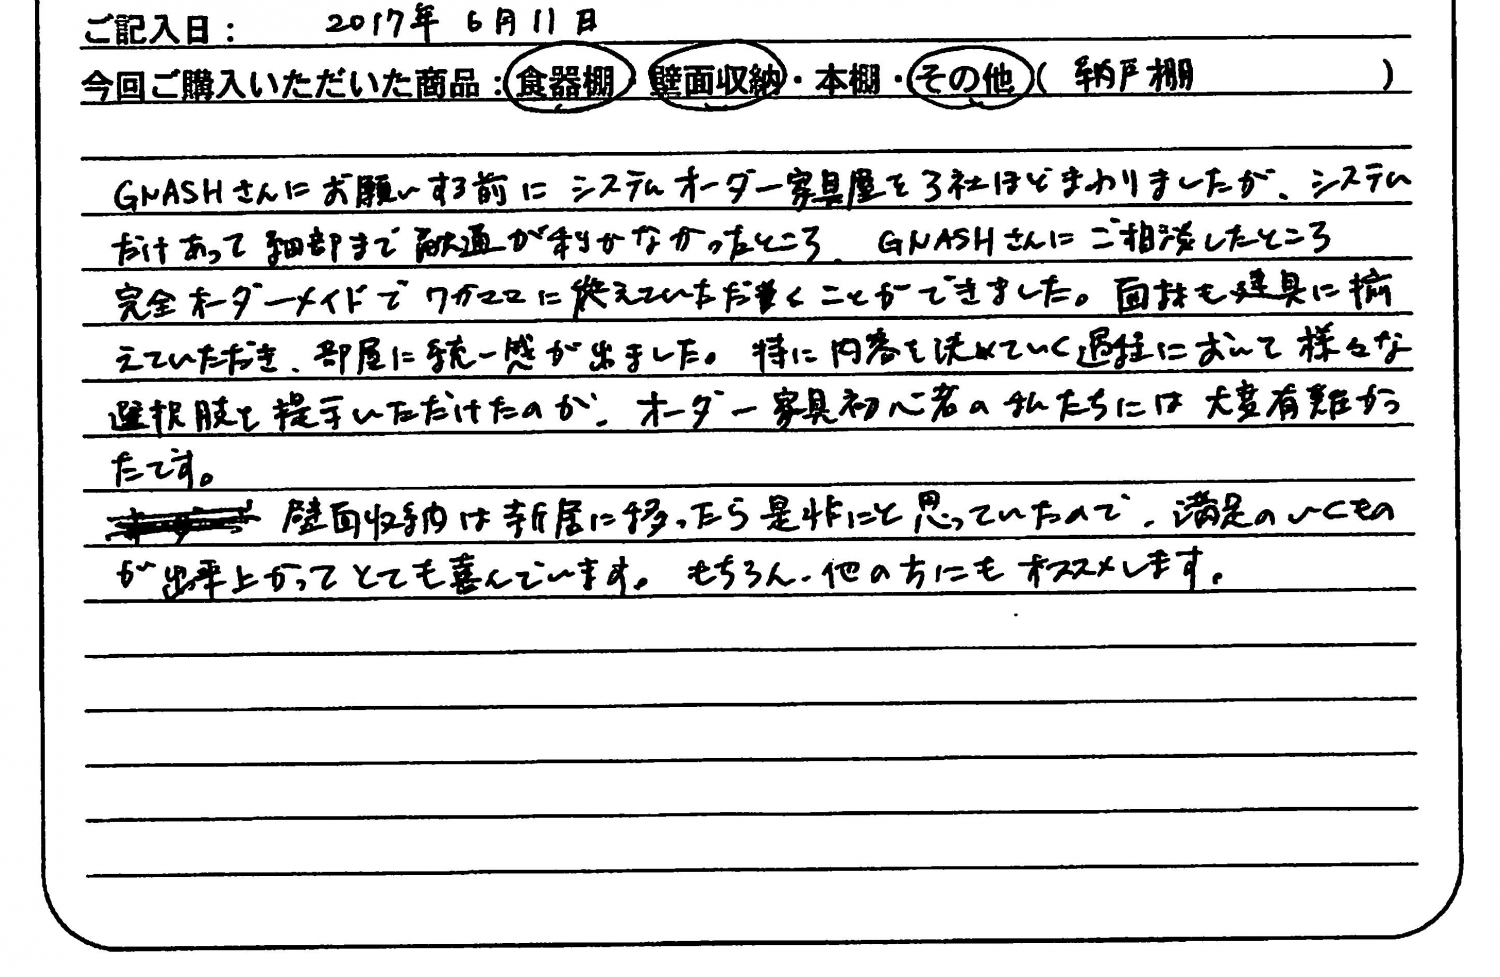 ご記入日： 2017年 6月11日
今回ご購入いただいた商品：食器棚・壁面収納・本棚・その他（ 納戸棚 ）
GNASHさんにお願いする前に システムオーダー家具屋を3社ほどまわりましたが、システム
だけあって細部まで融通が利かなかったところ、GNASHさんにご相談したところ
完全オーダーメイドでワガママに答えていただくことができました。面材も建具に揃
えていただき、部屋に統一感が出ました。特に内容を決めていく過程において様々な
選択肢を提示いただけたのが、オーダー家具初心者の私たちには大変有難かっ
たです。
壁面収納は新居に移ったら是非にと思っていたので、満足のいくもの
が出来上がってとても喜んでいます。もちろん、他の方にもオススメします。